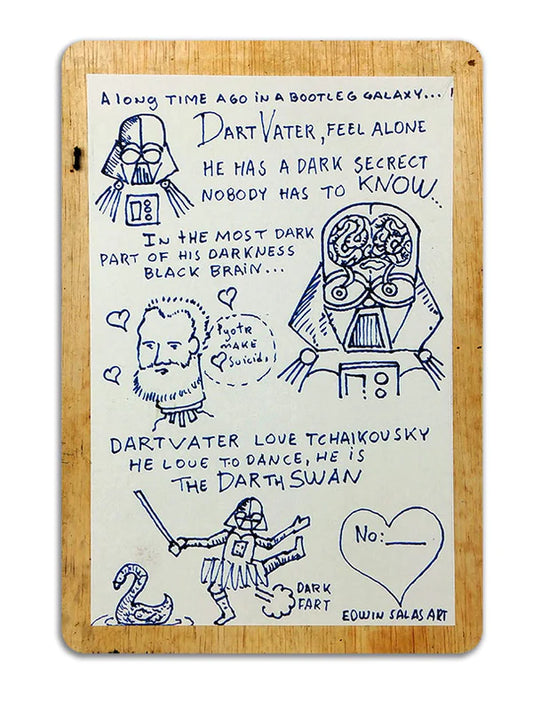 A long TIME AGO IN A BOOTLEG GALAXY...
DART VATER, FEEL ALONE
HE HAS A DARK SECRECT
NOBODY HAS TO KNOW...
IN tHE MOST DARK
PART OF HIS DARKNESS
BLACK BRAIN...
Pyotr
MAKE
Suicid,
DARTVATER LOVE TCHAIKOVSKY
HE LOVE TO DANCE, HE IS
THE DARTH SWAN
No:___
DARK
FART
EDWIN SALAS ART